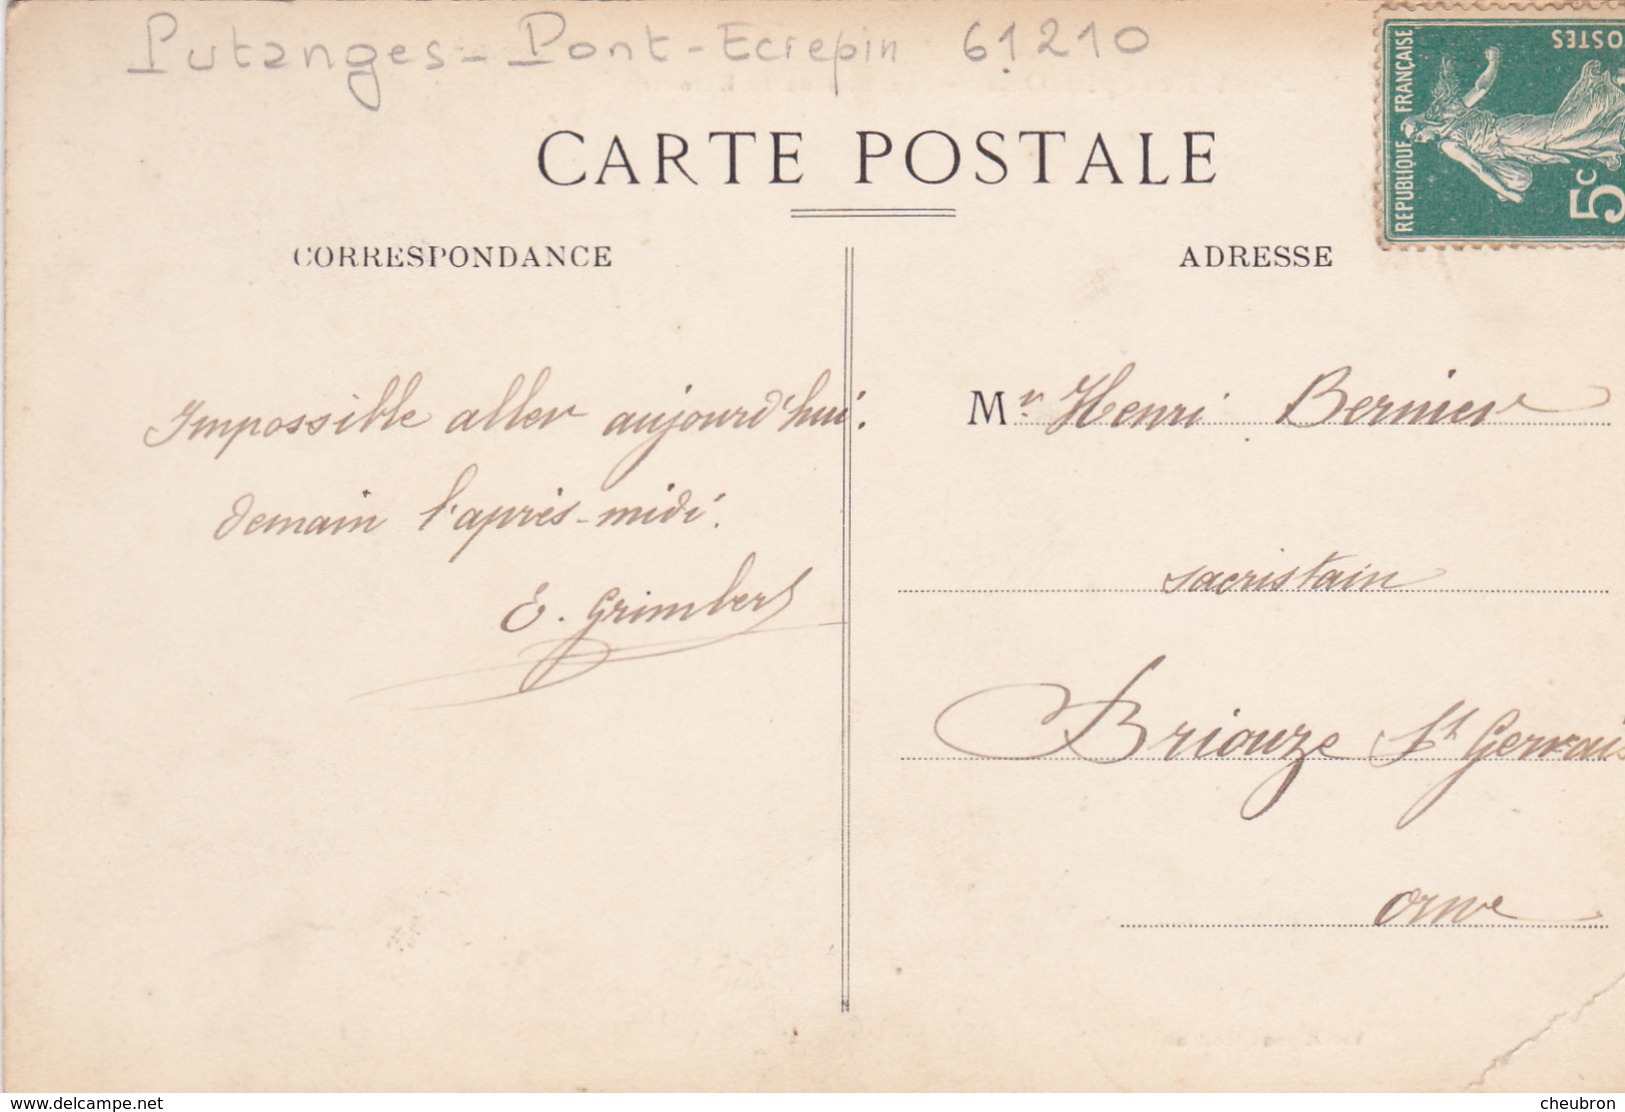 Putanges - Pont-Ecrepin 61210
RÉPUBLIQUE FRANÇAISE
POSTES
5c
CARTE POSTALE
CORRESPONDANCE
ADRESSE
Impossible aller aujourd'hui.
demain l'après-midi.
E. Grimbert
Mr. Henri Bernier
sacristain
Briouze St Gervais
Orne
delcampe.net
cheubron